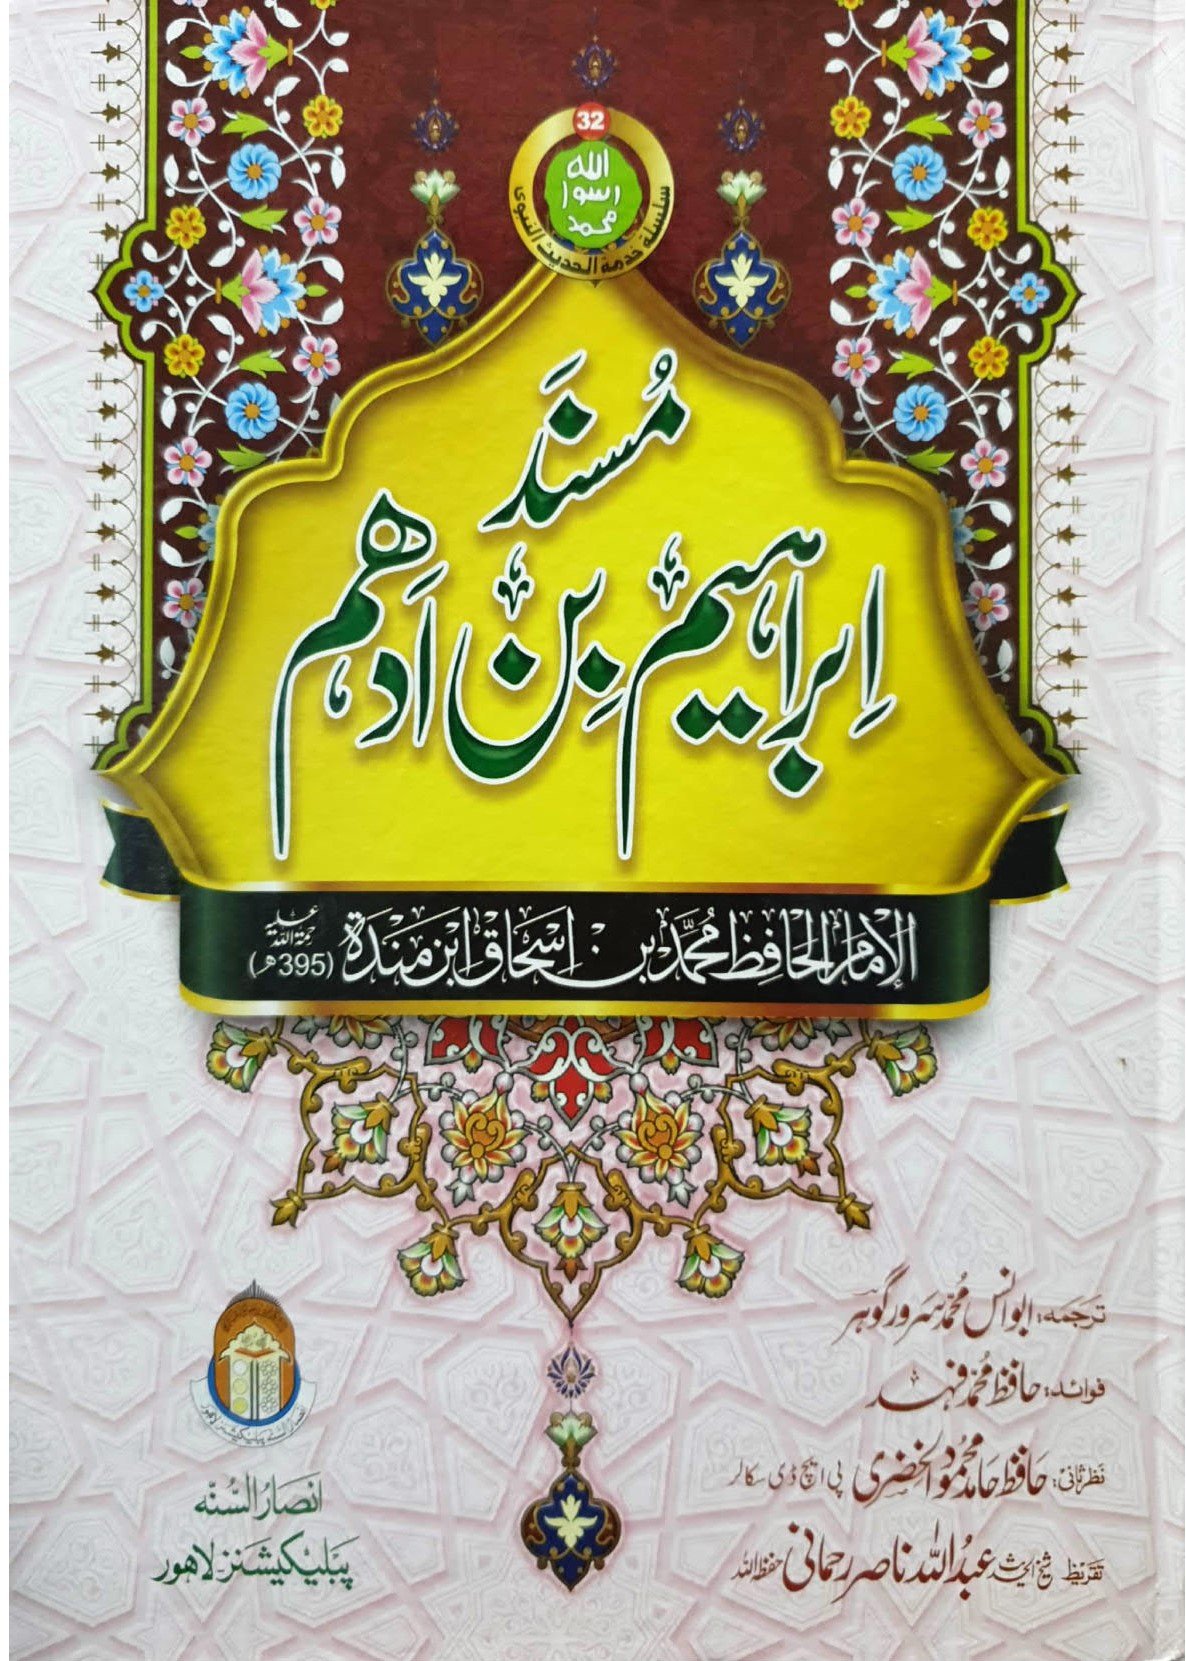 32
الله
رسول
محمد
سلسلة خدمة الحديث النبوى
مُسندَ
اِبراہیم بِن اَدہَم
الإمام الحافظ محمّد بن إسحاق ابن مندة رحمة الله عليه (395ھ)
ترجمہ: ابوانس محمد سرور گوہر
فوائد: حافظ محمد فہد
نظرثانی: حافظ حامد محمود الخضری پی ایچ ڈی سکالر
تقریظ شیخ الحدیث عبدُ اللہ ناصر رحمانی حفظہ اللہ
انصار السنہ پبلیکیشنز لاہور
انصارُ السُّنہ
پبلیکیشنز لاہور